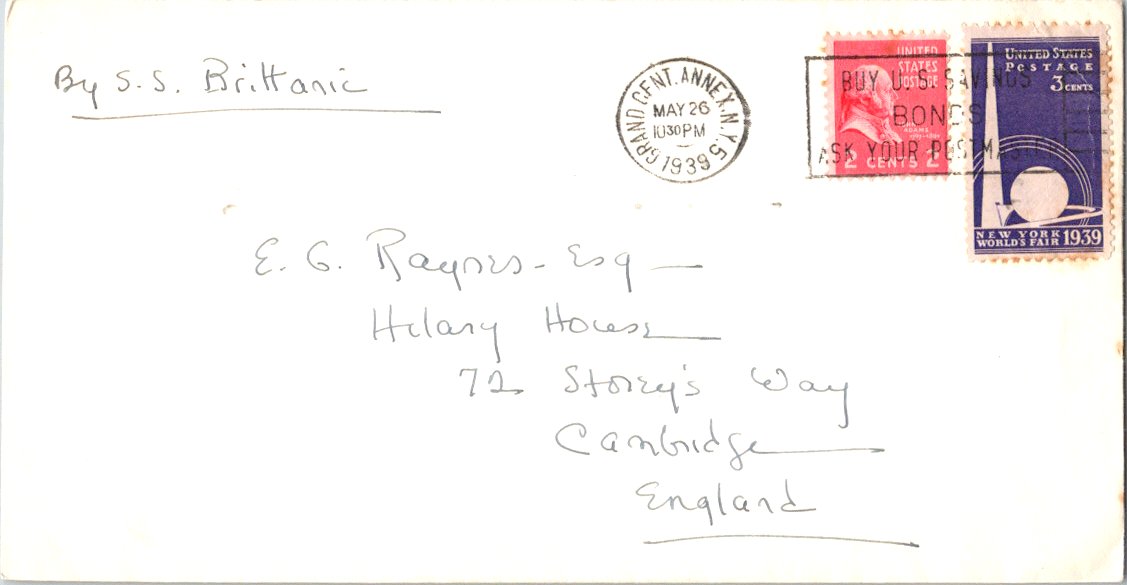 By S.S. Brittanic
GRAND CENT. ANNEX. N.Y. 5
MAY 26
10 30 PM
1939
BUY U.S. SAVINGS
BONDS
ASK YOUR POSTMASTER
UNITED
STATES
POSTAGE
ADAMS
2 CENTS 2
UNITED STATES
POSTAGE
3 CENTS
NEW YORK
WORLD'S FAIR 1939
E. G. Raynes - Esq -
Hilary House
72 Storey's Way
Cambridge
England